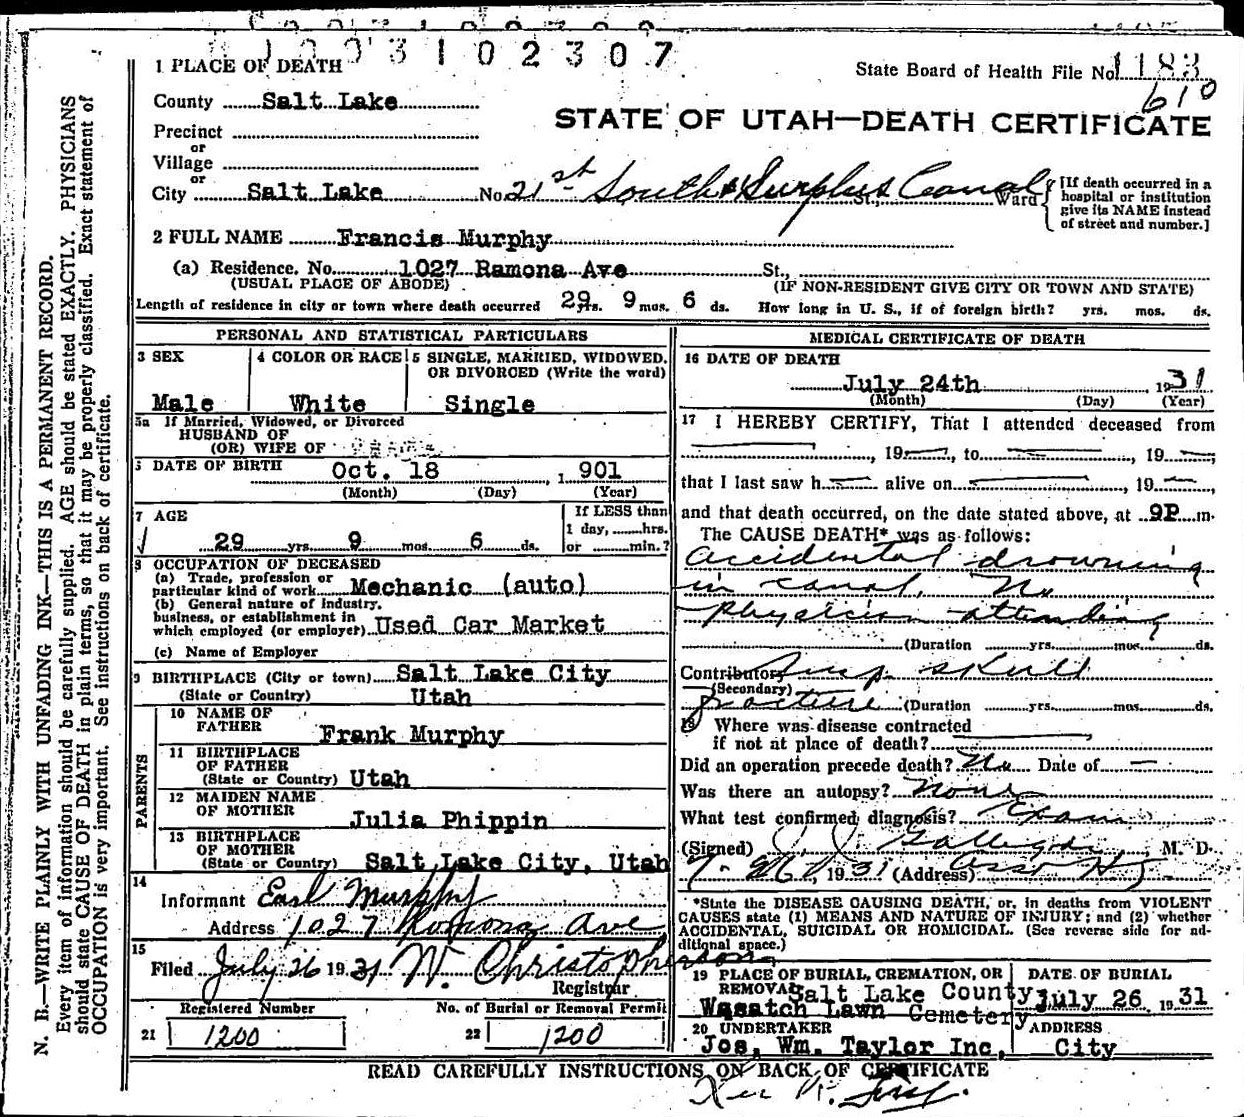 1003102307
1 PLACE OF DEATH
State Board of Health File No. 1183
610
County Salt Lake
STATE OF UTAH—DEATH CERTIFICATE
Precinct
or
Village
or
City Salt Lake No. 21st South & Surplus Canal St., Ward
[If death occurred in a hospital or institution give its NAME instead of street and number.]
2 FULL NAME Francis Murphy
(a) Residence. No. 1027 Ramona Ave St.,
(USUAL PLACE OF ABODE) (IF NON-RESIDENT GIVE CITY OR TOWN AND STATE)
Length of residence in city or town where death occurred 29 yrs. 9 mos. 6 ds. How long in U. S., if of foreign birth? yrs. mos. ds.
PERSONAL AND STATISTICAL PARTICULARS
3 SEX
Male
4 COLOR OR RACE
White
5 SINGLE, MARRIED, WIDOWED, OR DIVORCED (Write the word)
Single
5a If Married, Widowed, or Divorced
HUSBAND OF
(OR) WIFE OF
6 DATE OF BIRTH Oct. 18, 1901
(Month) (Day) (Year)
7 AGE
29 yrs. 9 mos. 6 ds.
If LESS than
1 day, hrs.
or min.?
8 OCCUPATION OF DECEASED
(a) Trade, profession or
particular kind of work Mechanic (auto)
(b) General nature of industry,
business, or establishment in
which employed (or employer) Used Car Market
(c) Name of Employer
9 BIRTHPLACE (City or town) Salt Lake City
(State or Country) Utah
PARENTS
10 NAME OF
FATHER Frank Murphy
11 BIRTHPLACE
OF FATHER
(State or Country) Utah
12 MAIDEN NAME
OF MOTHER Julia Phippin
13 BIRTHPLACE
OF MOTHER
(State or Country) Salt Lake City, Utah
14
Informant Earl Murphy
Address 1027 Romona Ave
15
Filed July 26 1931 W. Christophersons
Registrar
Registered Number
21 1200
No. of Burial or Removal Permit
22 1200
MEDICAL CERTIFICATE OF DEATH
16 DATE OF DEATH
July 24th 1931
(Month) (Day) (Year)
17 I HEREBY CERTIFY, That I attended deceased from
, 19 , to , 19 ,
that I last saw h alive on , 19 ,
and that death occurred, on the date stated above, at 9P m.
The CAUSE DEATH* was as follows:
Accidental drowning
in canal. No
physician attending
(Duration yrs. mos. ds.
Contributory Imp. skull
(Secondary)
fracture (Duration yrs. mos. ds.
18 Where was disease contracted
if not at place of death?
Did an operation precede death? No Date of —
Was there an autopsy? None
What test confirmed diagnosis? Exam
(Signed) J. J. Galligan, M. D.
, 1931 (Address)
*State the DISEASE CAUSING DEATH, or, in deaths from VIOLENT
CAUSES state (1) MEANS AND NATURE OF INJURY; and (2) whether
ACCIDENTAL, SUICIDAL OR HOMICIDAL. (See reverse side for ad-
ditional space.)
19 PLACE OF BURIAL, CREMATION, OR
REMOVAL Salt Lake County
Wasatch Lawn Cemetery
DATE OF BURIAL
July 26 1931
20 UNDERTAKER
Jos. Wm. Taylor Inc.
ADDRESS
City
READ CAREFULLY INSTRUCTIONS ON BACK OF CERTIFICATE
N. B.—WRITE PLAINLY WITH UNFADING INK—THIS IS A PERMANENT RECORD.
Every item of information should be carefully supplied. AGE should be stated EXACTLY. PHYSICIANS
should state CAUSE OF DEATH in plain terms, so that it may be properly classified. Exact statement of
OCCUPATION is very important. See instructions on back of certificate.